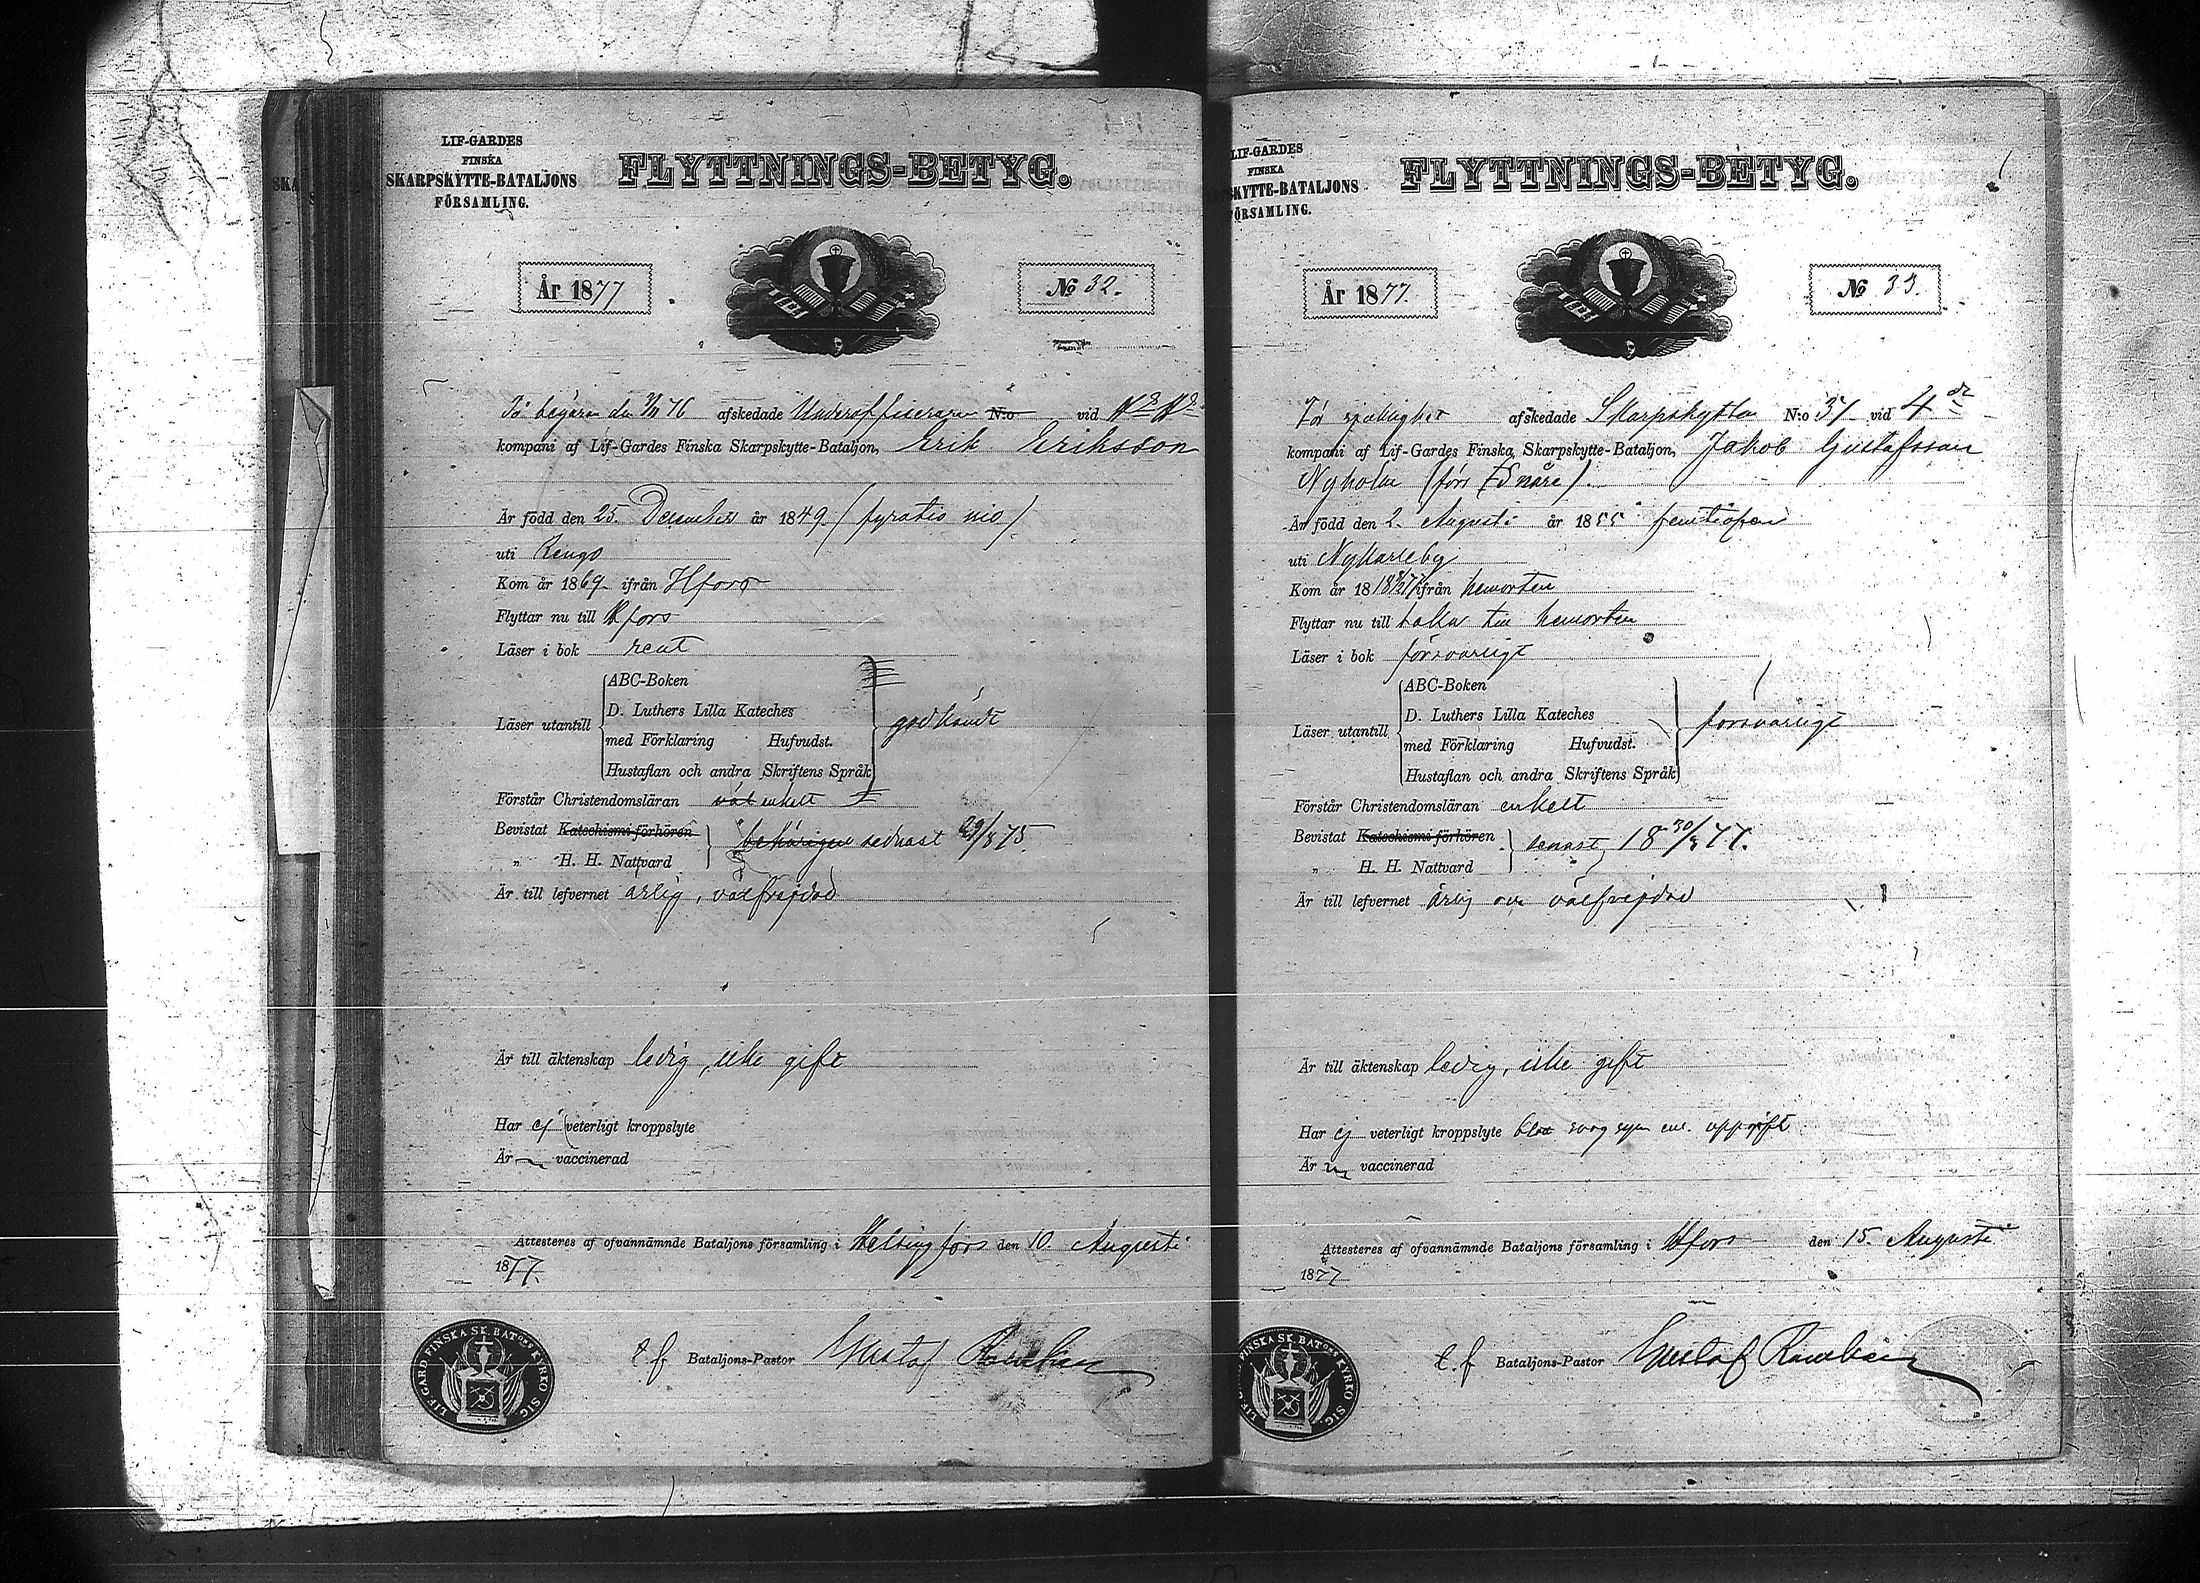 LIF-GARDES
FINSKA
SKARPSKYTTE-BATALJONS
FÖRSAMLING.
FLYTTNINGS-BETYG.
År 1877
№ 32.
På begäran du afskedade Underofficeraren N:o vid
kompani af Lif-Gardes Finska Skarpskytte-Bataljon, Erik Eriksson
Är född den 25. December år 1849. (fyratio nio)
uti Rengo
Kom år 1869 ifrån Hfors
Flyttar nu till Hfors
Läser i bok rent
ABC-Boken
D. Luthers Lilla Kateches
Läser utantill med Förklaring Hufvudst. godkändt
Hustaflan och andra Skriftens Språk
Förstår Christendomsläran enkelt
Bevistat Katechismi-förhören behörigen sednast 29/8 75.
„ H. H. Nattvard
Är till lefvernet ärlig, välfrejdad
Är till äktenskap ledig, icke gift
Har ej veterligt kroppslyte
Är vaccinerad
Attesteres af ofvannämnde Bataljons församling i Helsingfors den 10. Augusti
1877.
t. f. Bataljons-Pastor Gustaf
LIF-GARD FINSKA SK. BATONS KYRKO SIG.
LIF-GARDES
FINSKA
SKYTTE-BATALJONS
FÖRSAMLING.
FLYTTNINGS-BETYG.
År 1877.
№ 33.
För sjuklighet afskedade Skarpskytten N:o 37 vid 4de
kompani af Lif-Gardes Finska Skarpskytte-Bataljon, Jakob Gustafsson
Nyholm (förr Snåre).
Är född den 2. Augusti år 1855 femtiofem
uti Nykarleby
Kom år 18 ifrån hemorten
Flyttar nu till baka till hemorten
Läser i bok försvarligt
ABC-Boken
D. Luthers Lilla Kateches
Läser utantill med Förklaring Hufvudst. försvarligt
Hustaflan och andra Skriftens Språk
Förstår Christendomsläran enkelt
Bevistat Katechismi-förhören senast 18 77.
„ H. H. Nattvard
Är till lefvernet ärlig och välfrejdad
Är till äktenskap ledig, icke gift
Har ej veterligt kroppslyte blott svag syn enl. uppgift
Är vaccinerad
Attesteres af ofvannämnde Bataljons församling i Hfors den 15. Augusti
1877
t. f. Bataljons-Pastor Gustaf
FINSKA SK. BATONS KYRKO SIG.